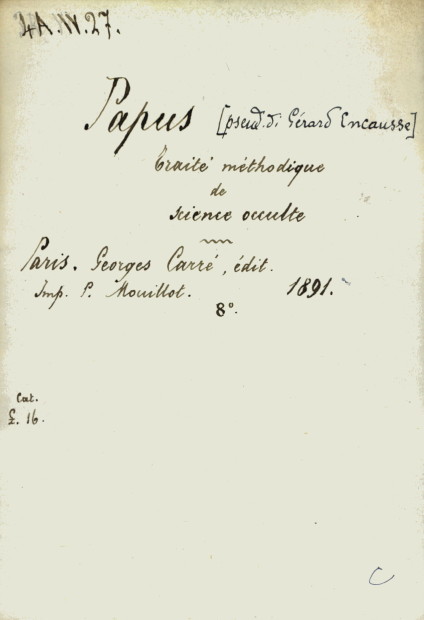 4A.IV.27.
Papus [pseud. di Gérard Encausse]
Traité méthodique
de
science occulte
Paris. Georges Carré, édit.
Imp. P. Mouillot. 1891.
8°.
Cat.
£. 16.
C